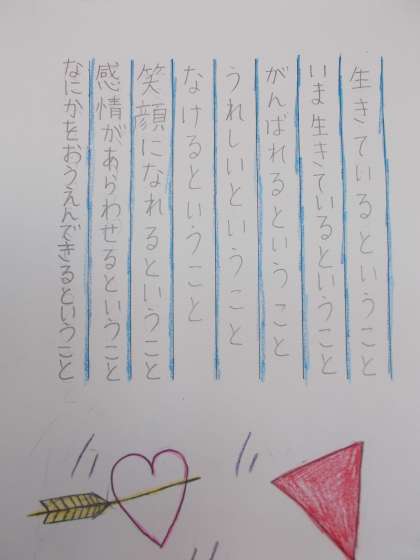 生きているということ
いま生きているということ
がんばれるということ
うれしいということ
なけるということ
笑顔になれるということ
感情があらわせるということ
なにかをおうえんできるということ